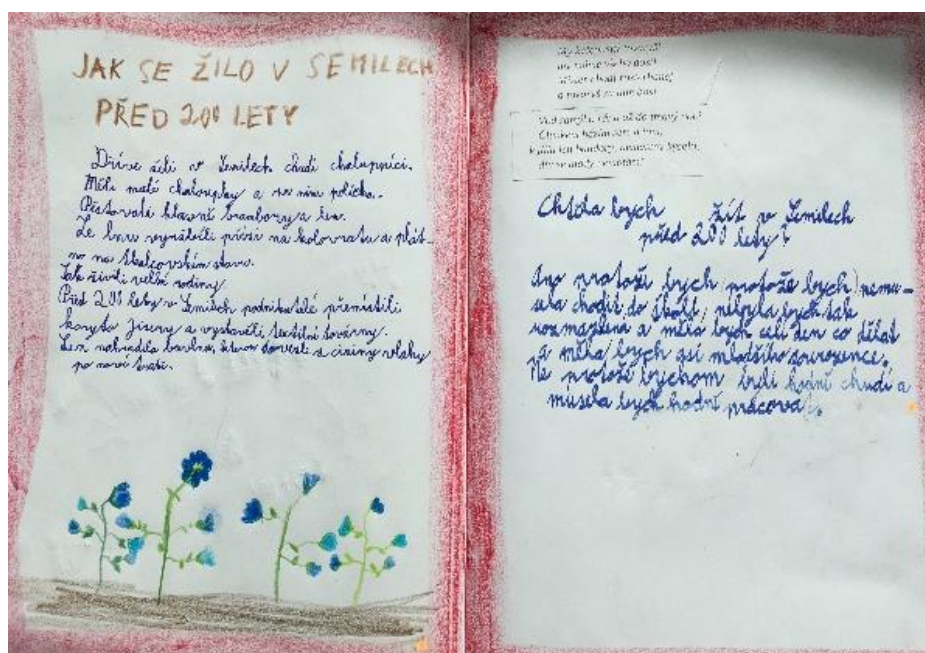 JAK SE ŽILO V SEMILECH
PŘED 200 LETY
Dříve žili v Semilech chudí chalupníci.
Měli malé chaloupky a na nimi políčka.
Pěstovali hlavně brambory a len.
Ze lnu vyráběli přízi na kolovratu a plát-
no na tkalcovském stavu.
Tak živili velké rodiny.
Před 200 lety v Semilech podnikatelé přemístili
koryto Jizery a vystavěli textilní továrny.
Len nahradila bavlna, kterou dovezli z ciziny vlaky
po nové trati.
Chtěla bych žít v Semilech
před 200 lety?
Ano protože bych (protože bych) nemu-
sela chodit do školy, nebyla bych tak
rozmazlená a měla bych celí den co dělat
a měla bych asi mladšího sourozence.
Ne protože bychom byli hodně chudí a
musela bych hodně pracovat.